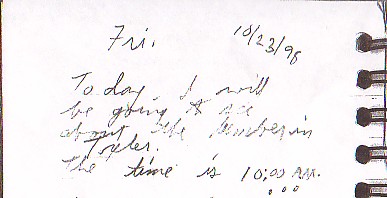 Fri. 10/23/98
Today I will
be going to see
about the in
Tyler.
The time is 10:00 AM.